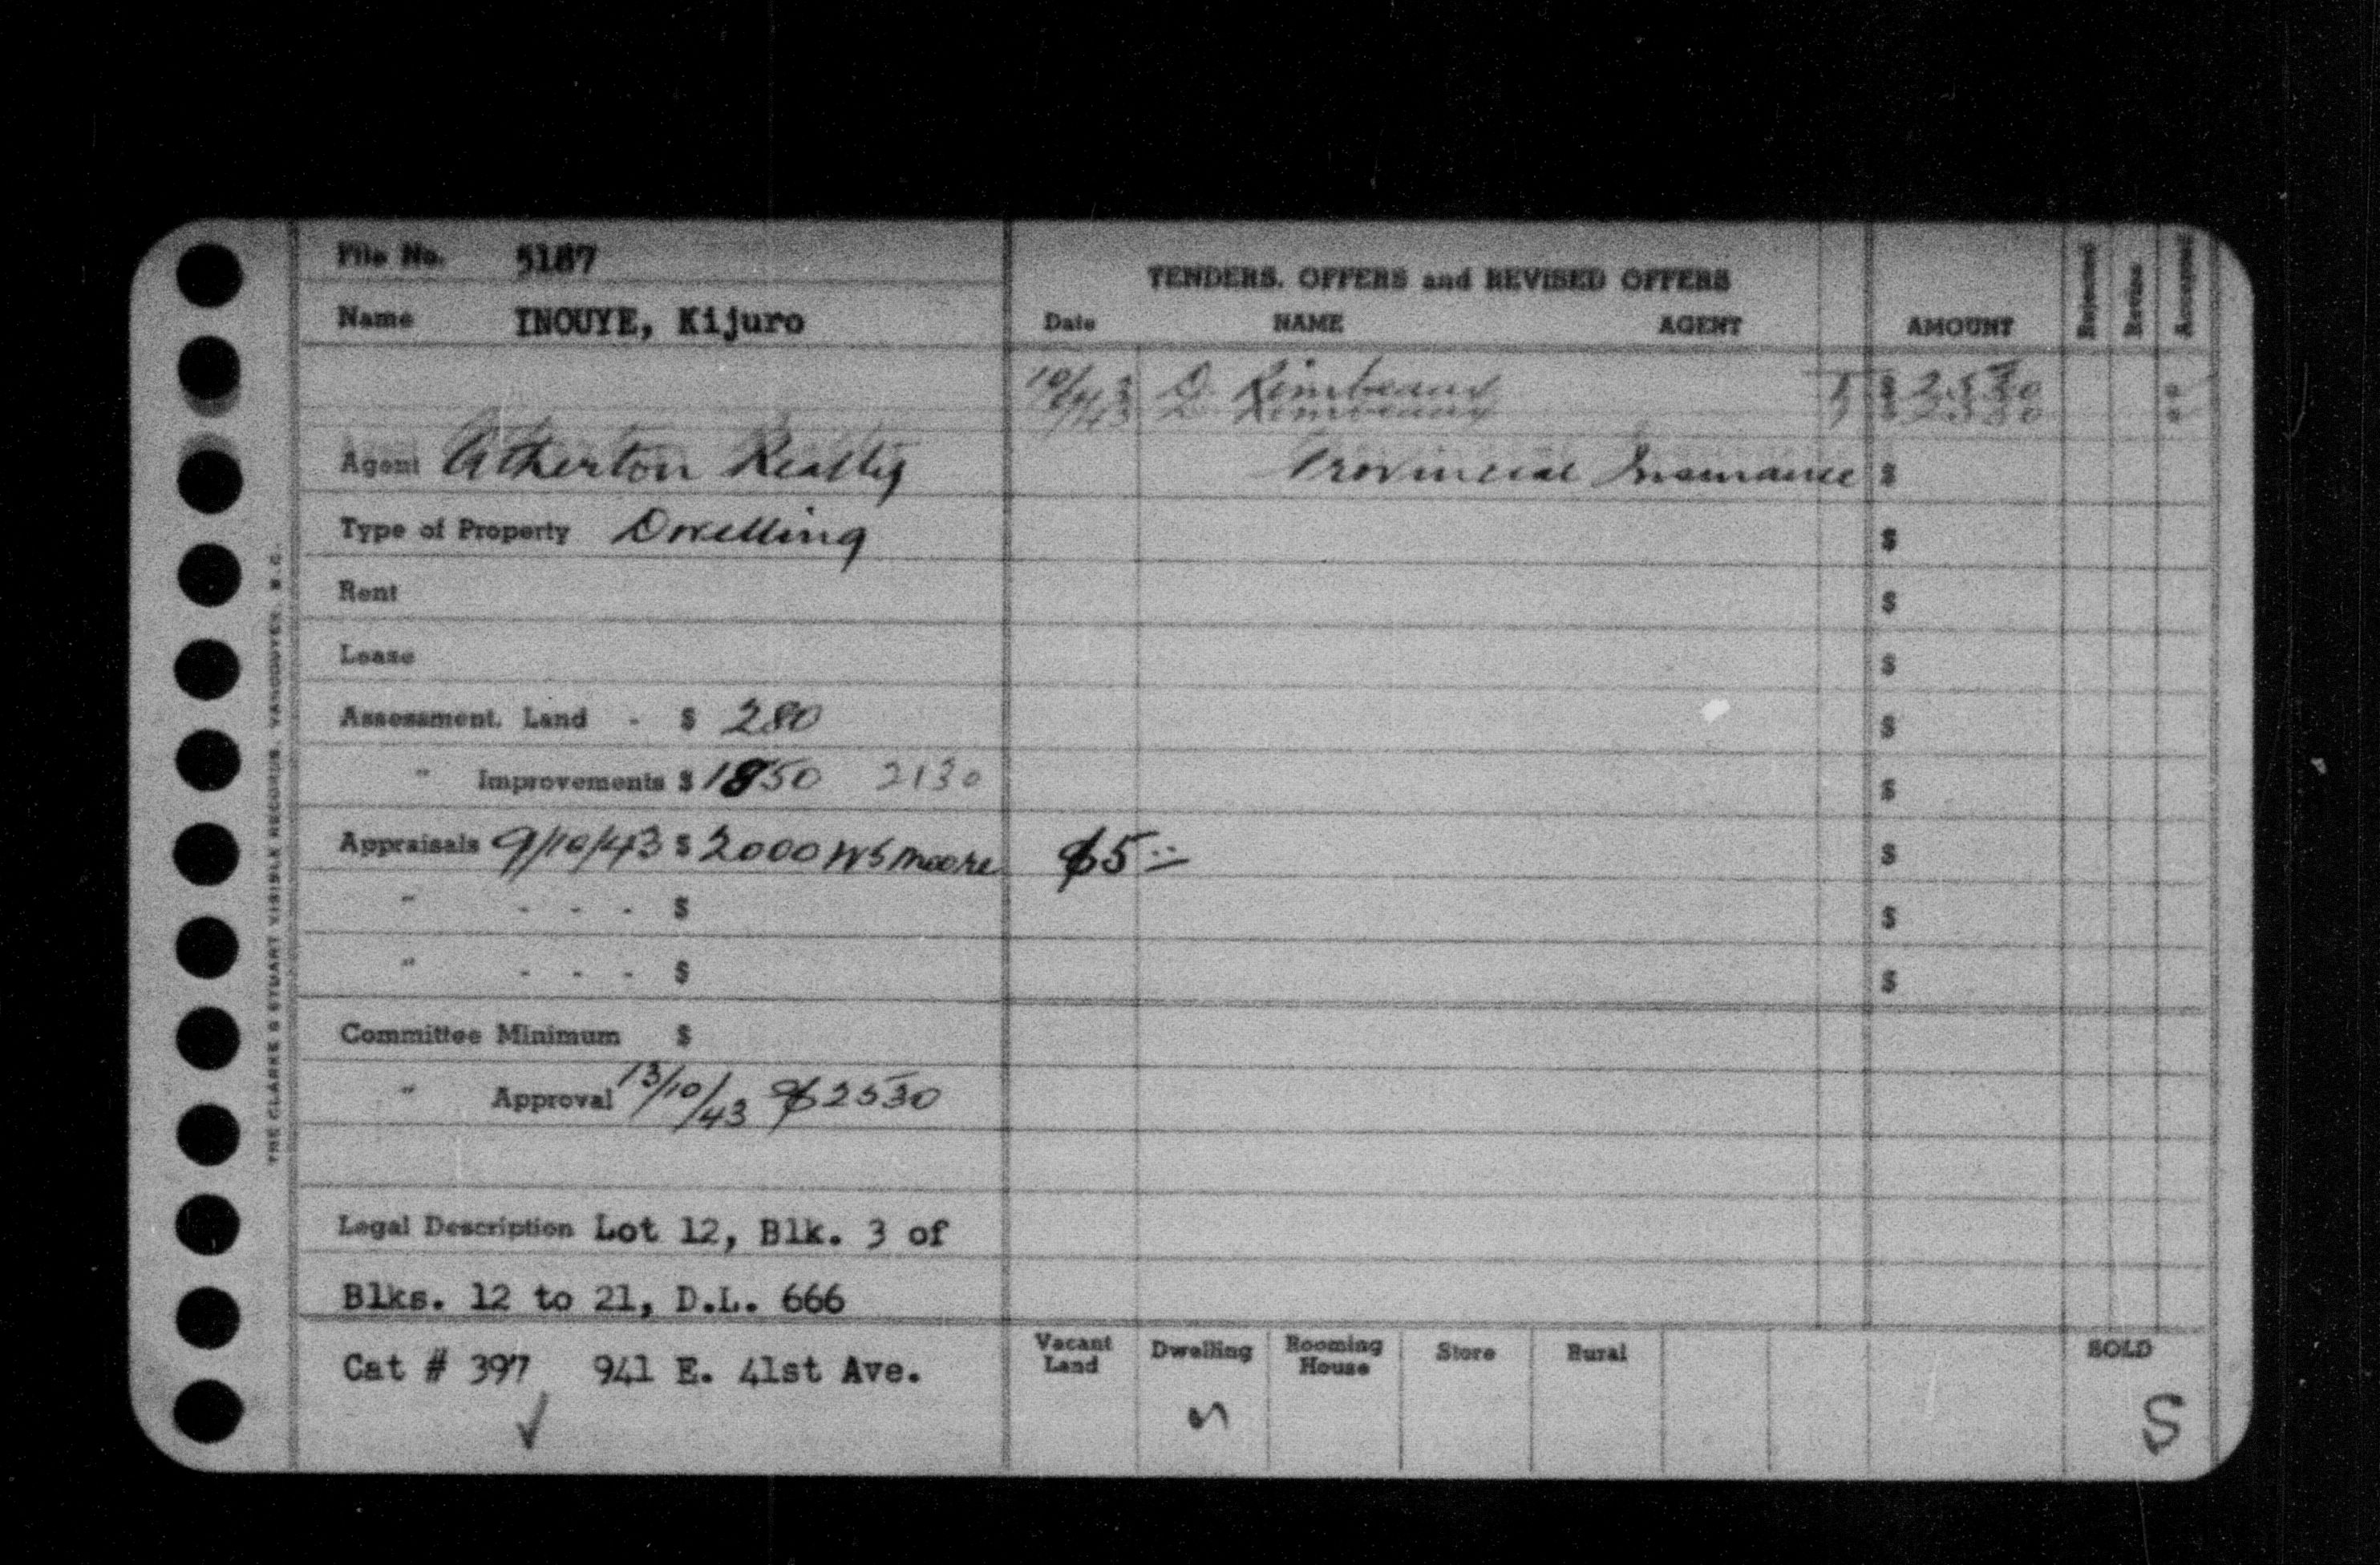 File No. 5187
Name INOUYE, Kijuro
Agent Atherton Realty
Type of Property Dwelling
Rent
Lease
Assessment. Land - $ 280
" Improvements $ 1850 2130
Appraisals 9/10/43 $ 2000 WS Moore $5
" - - - $
" - - - $
Committee Minimum $
" Approval 13/10/43 $2530
Legal Description Lot 12, Blk. 3 of
Blks. 12 to 21, D.L. 666
Cat # 397 941 E. 41st Ave.
TENDERS. OFFERS and REVISED OFFERS
Date NAME AGENT AMOUNT Rejected Revise Accepted
D. Rimbeaux $ 2530
Provincial Insurance $
$
$
$
$
$
$
$
$
Vacant Land Dwelling Rooming House Store Rural SOLD
S
THE CLARKE & STUART VISIBLE RECORDS. VANCOUVER. B.C.